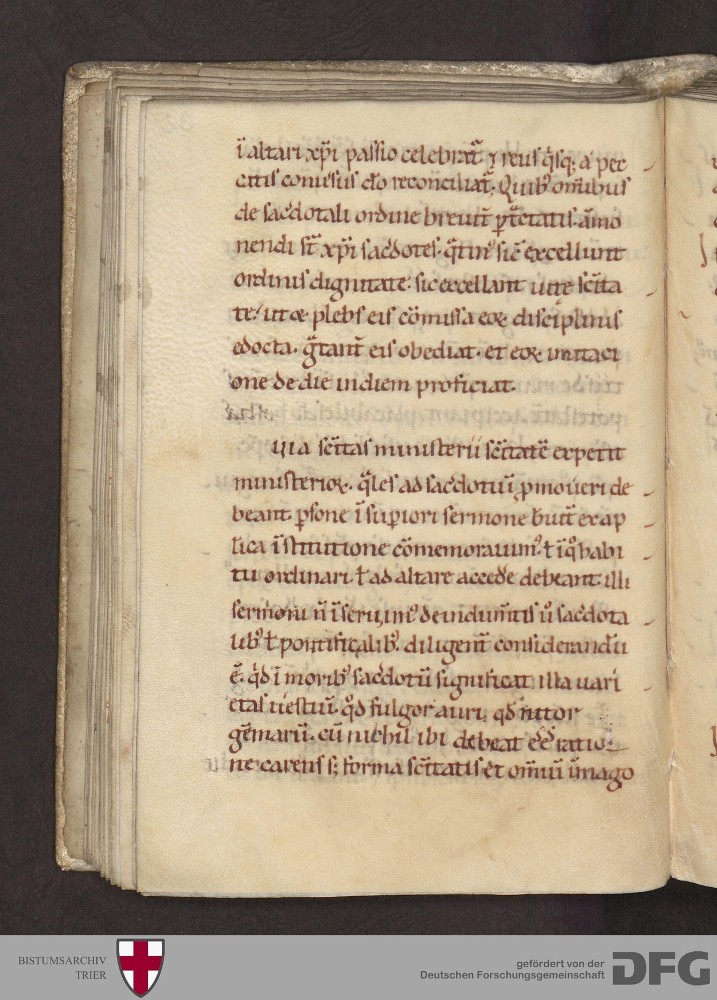 ī altari xp̄i passio celebrat᷑ ⁊ reus q̇sq; a pec
catis conuersus dō reconciliat᷑. Quib; omībus
de sac̄dotali ordine breuit̄ p̄tctatis. āmo
nendi st̄ xp̄i sac̄dotes. q̄tin᷒ sic̄ excellunt
ordinis dignitate. sic excellant uitę sc̄ita
te. ut & plebs eis cōmissa eoꝝ disciplinis
edocta. g̃tant᷑ eis obediat. et eoꝝ imitaci
one de die in diem proficiat.
uia sc̄itas ministerii sc̄itatē expetit
ministerioꝝ. q̄les ad sac̄dotiū ꝓmoueri de
beant psone ī supiori sermone breuit᷑ ex ap
lica īstitutione cōmemorauim᷒. ł ī q᷒ habi
tu ordinari. ł ad altare accede debeant. illi
sermoni n̄ īseruim᷒. de indumītis u᷒ sac̄dota
lib᷒ ł pontificalib᷒. diligent᷑ considerandū
ē. q̇d ī morib᷒ sac̄dotū significat illa uari
etas uestiū. q̇d fulgor auri. qd nitor
gēmarū. cū nichil ibi debeat eē ratio
ne carens s; forma sc̄itatis et omīū īmago
BISTUMSARCHIV
TRIER
gefördert von der
Deutschen Forschungsgemeinschaft
DFG